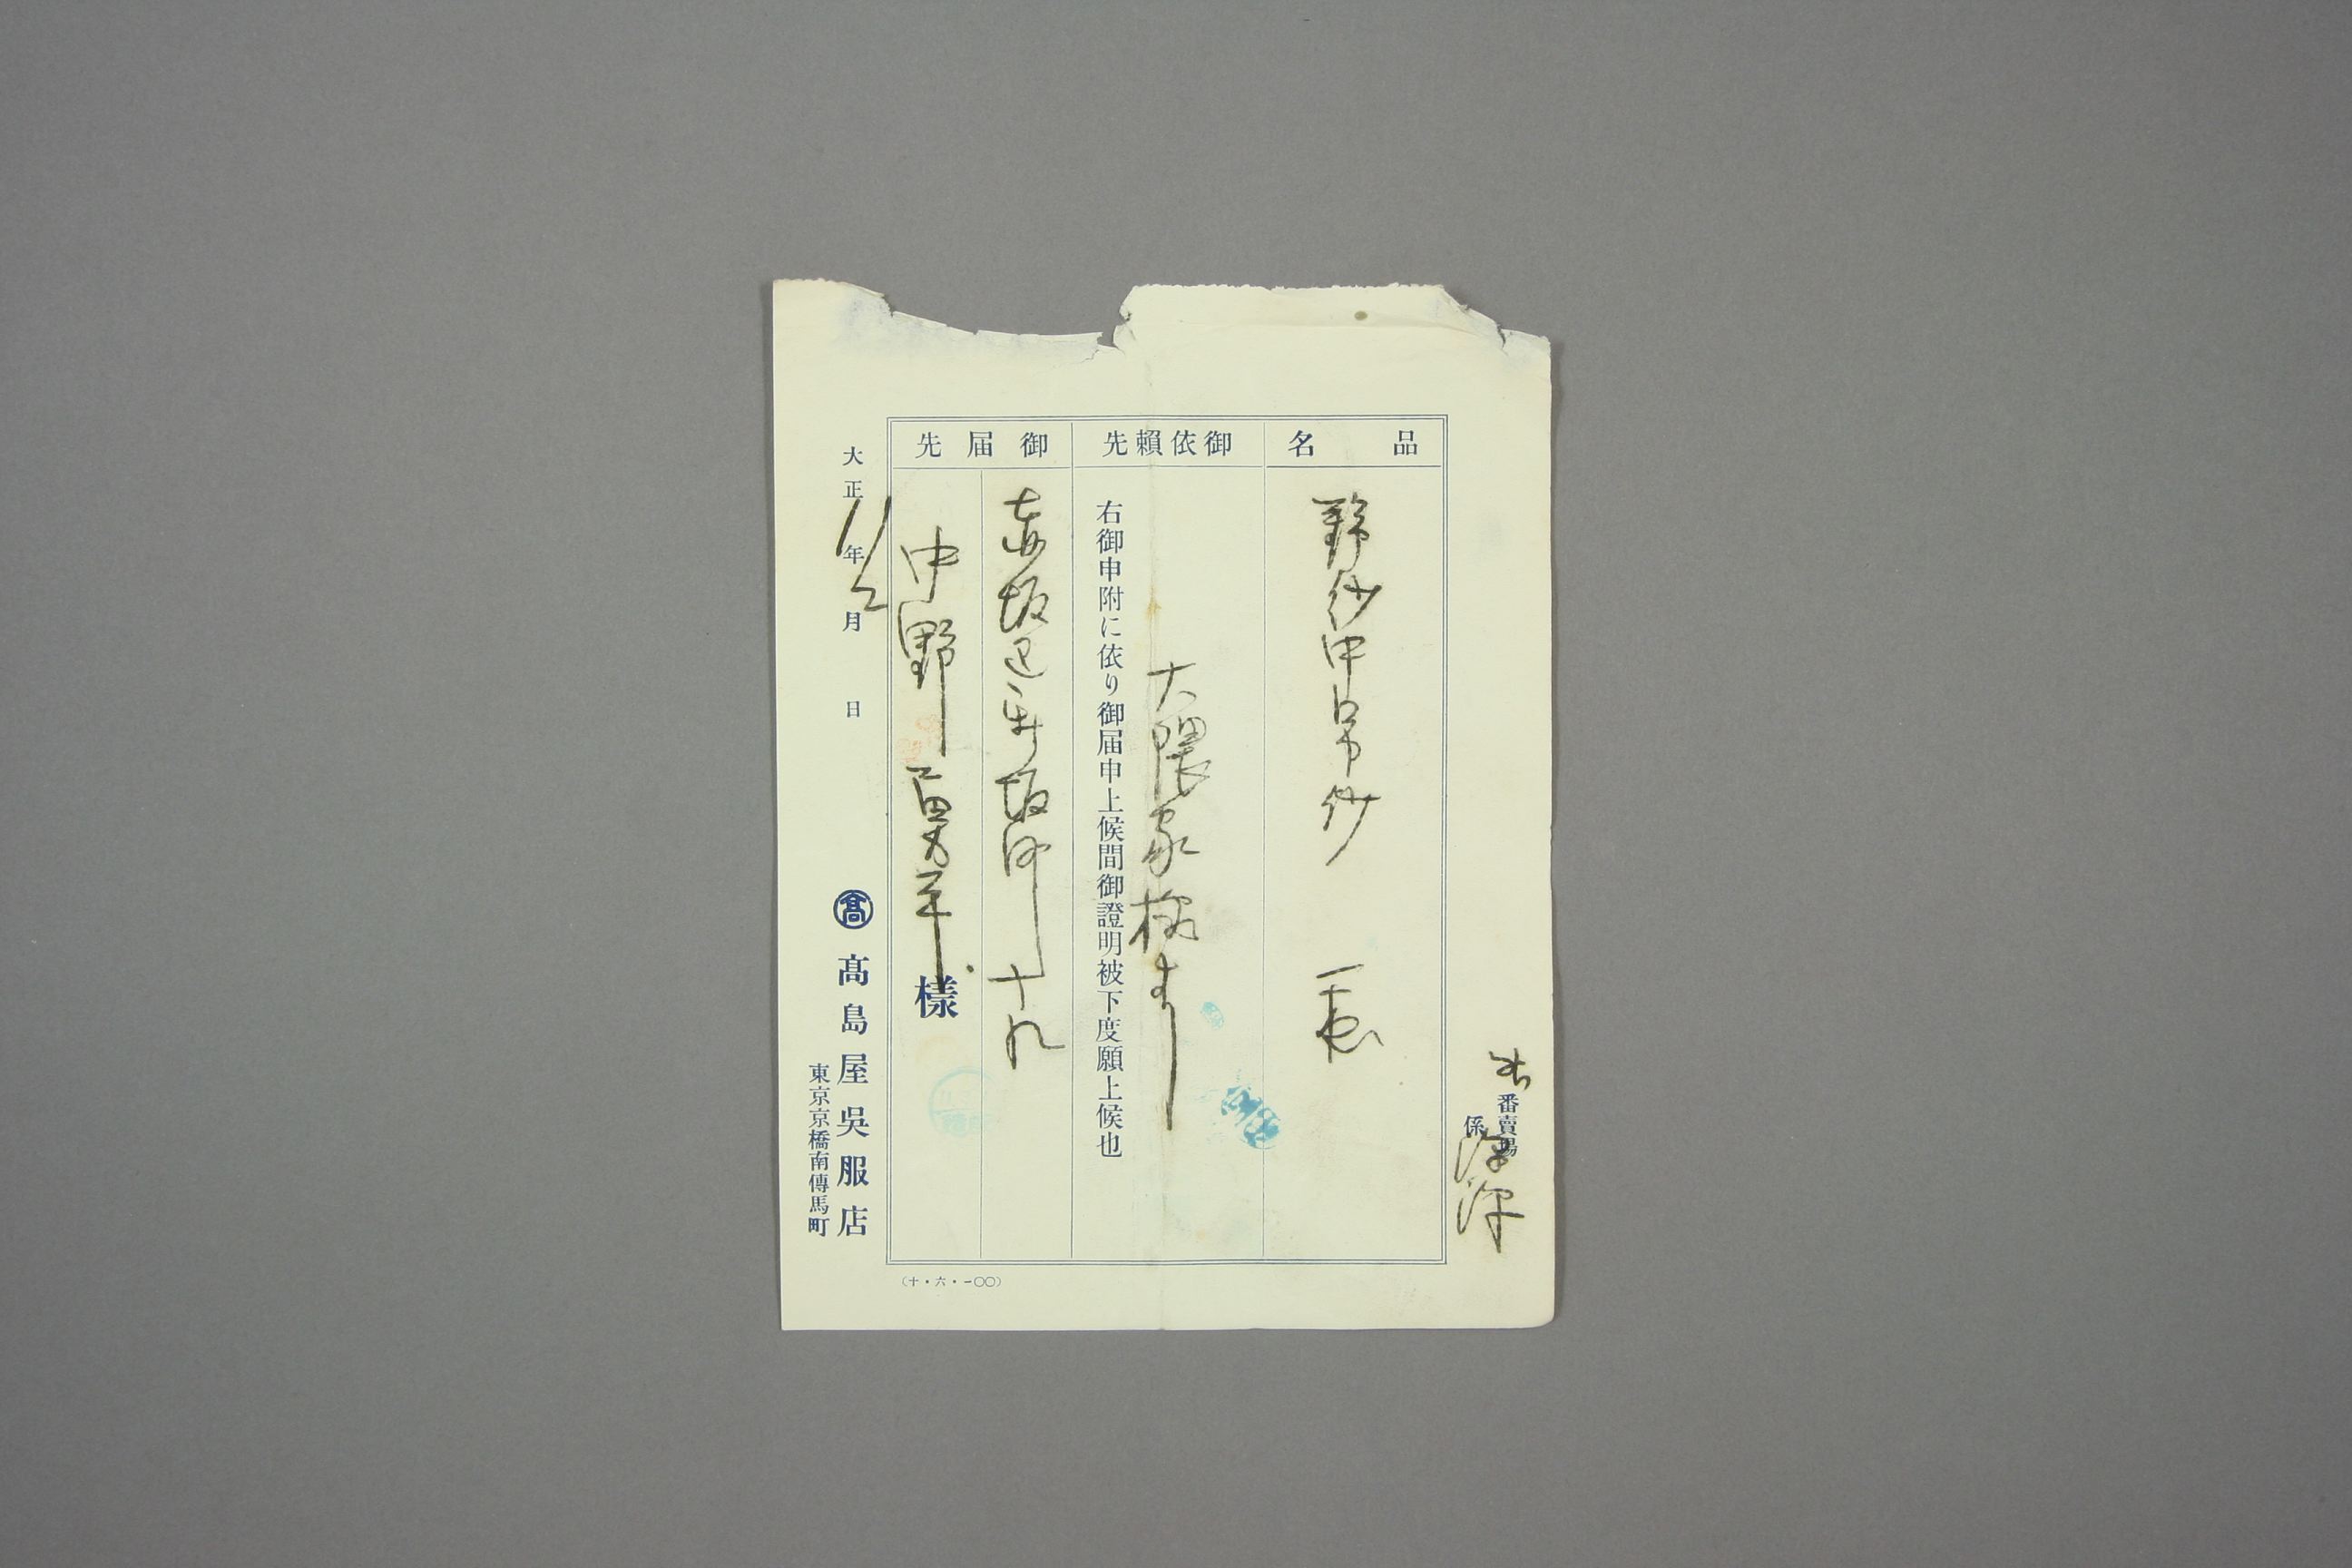 番賣場
係
品名
塩紗中帛紗 一
御依賴先
大隈家様より
右御申附に依り御届申上候間御證明被下度願上候也
御届先
赤坂区新坂町十九
中野 様
大正11年2月 日
髙 髙島屋吳服店
東京京橋南傳馬町
(十・六・一〇〇)